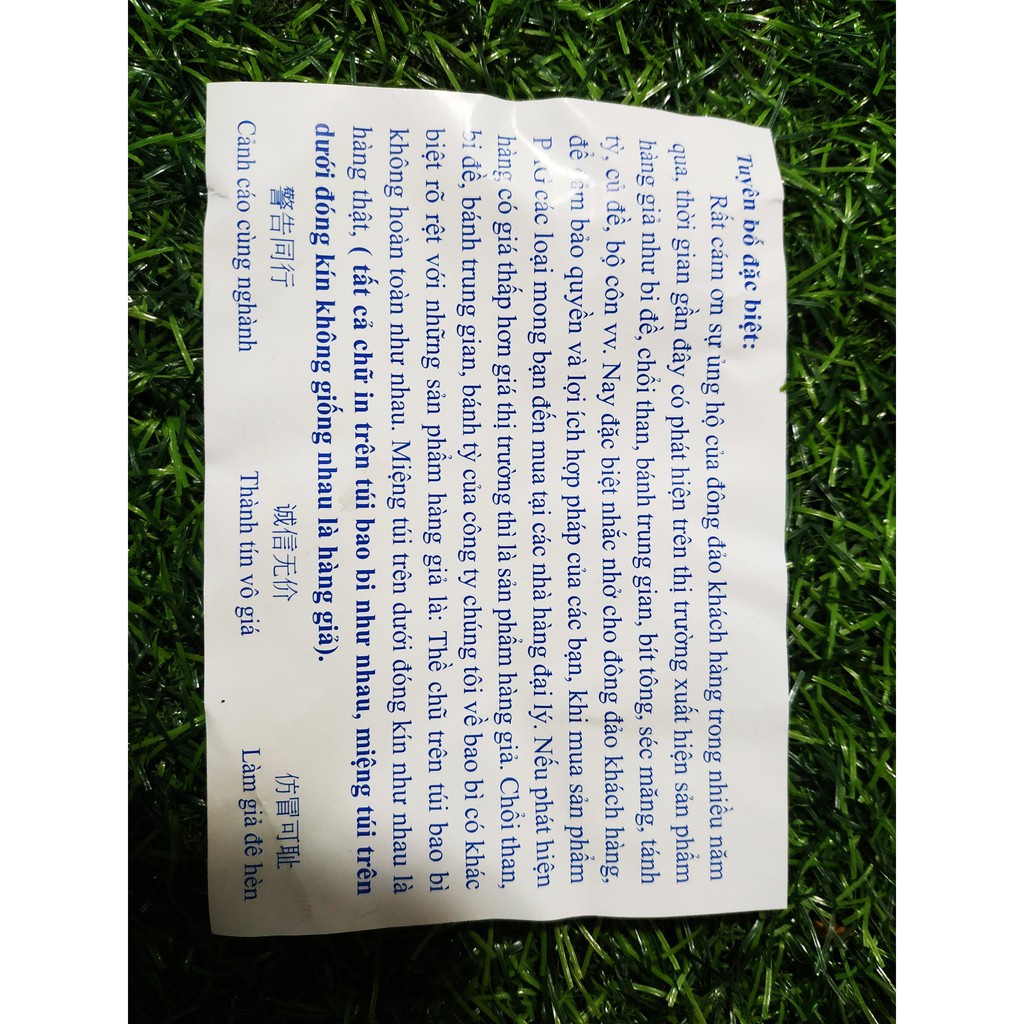 Tuyên bố đặc biệt:
Rất cám ơn sự ủng hộ của đông đảo khách hàng trong nhiều năm
qua, thời gian gần đây có phát hiện trên thị trường xuất hiện sản phẩm
hàng giả như bi đề, chổi than, bánh trung gian, bít tông, séc măng, tánh
tỳ, củ đề, bộ côn vv. Nay đặc biệt nhắc nhở cho đông đảo khách hàng,
để đảm bảo quyền và lợi ích hợp pháp của các bạn, khi mua sản phẩm
các loại mong bạn đến mua tại các nhà hàng đại lý. Nếu phát hiện
hàng có giá thấp hơn giá thị trường thì là sản phẩm hàng giả. Chổi than,
bi đề, bánh trung gian, bánh tỳ của công ty chúng tôi về bao bì có khác
biệt rõ rệt với những sản phẩm hàng giả là: Thề chũ trên túi bao bì
không hoàn toàn như nhau. Miệng túi trên dưới đóng kín như nhau là
hàng thật, ( tất cả chữ in trên túi bao bi như nhau, miệng túi trên
dưới đóng kín không giống nhau là hàng giả).
警告同行 诚信无价 仿冒可耻
Cảnh cáo cùng nghành Thành tín vô giá Làm giả đê hèn